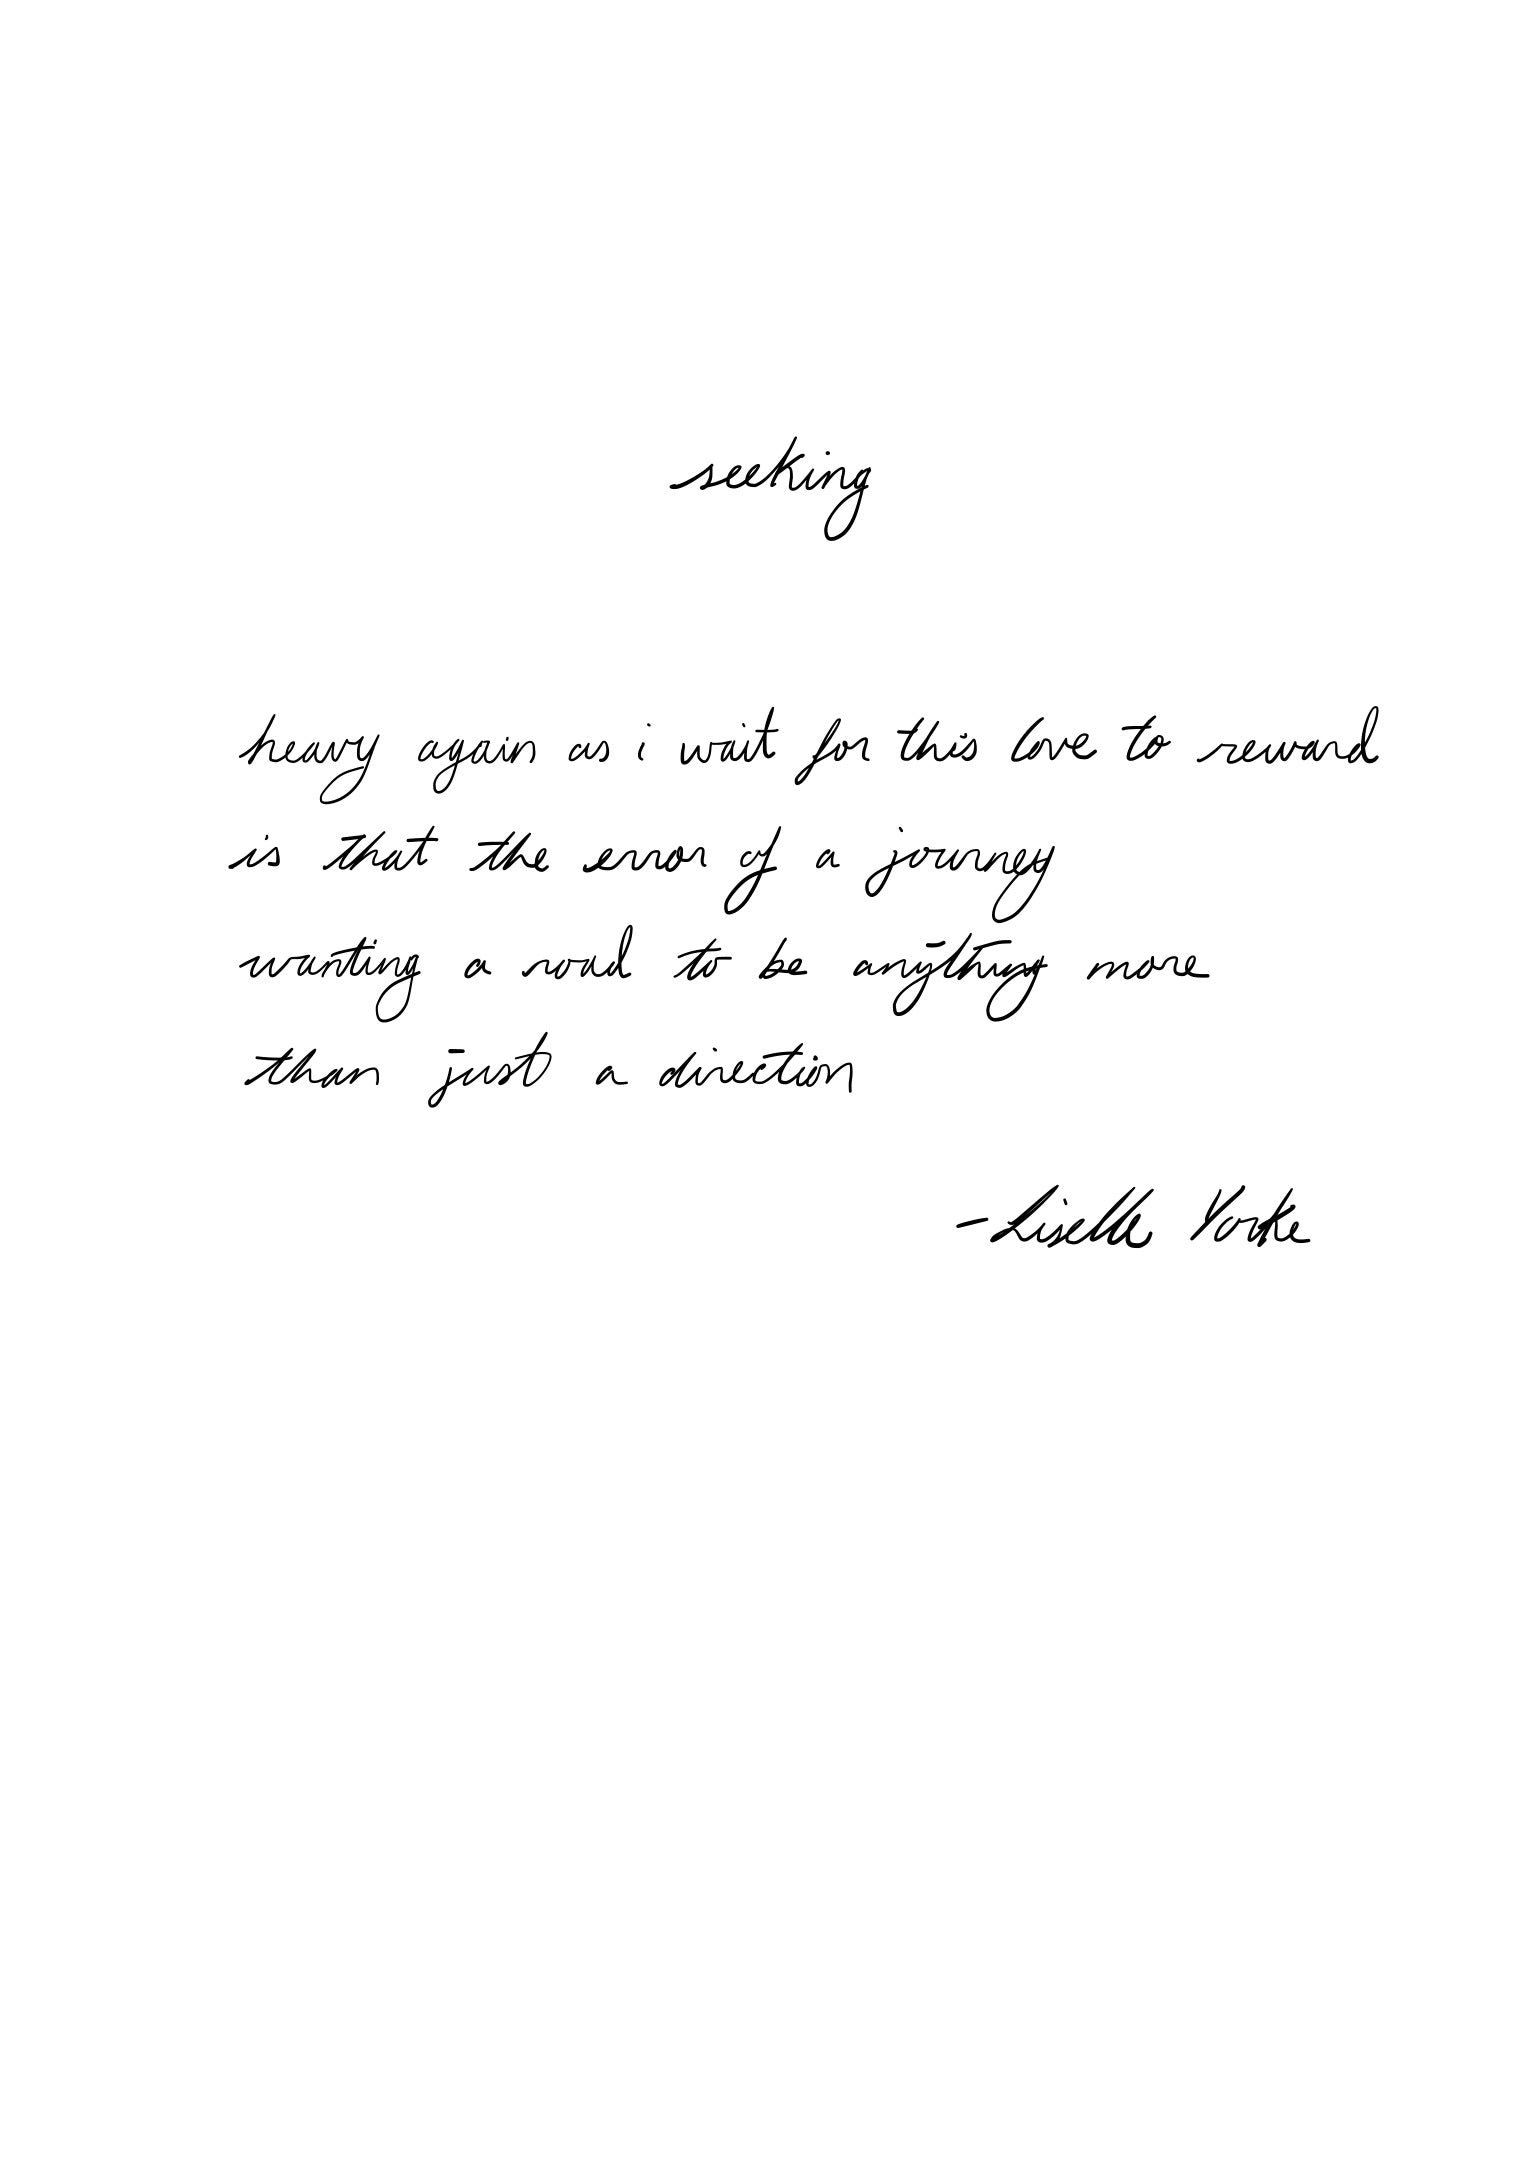 seeking
heavy again as i wait for this love to reward
is that the error of a journey
wanting a road to be anything more
than just a direction
-Liselle Yorke